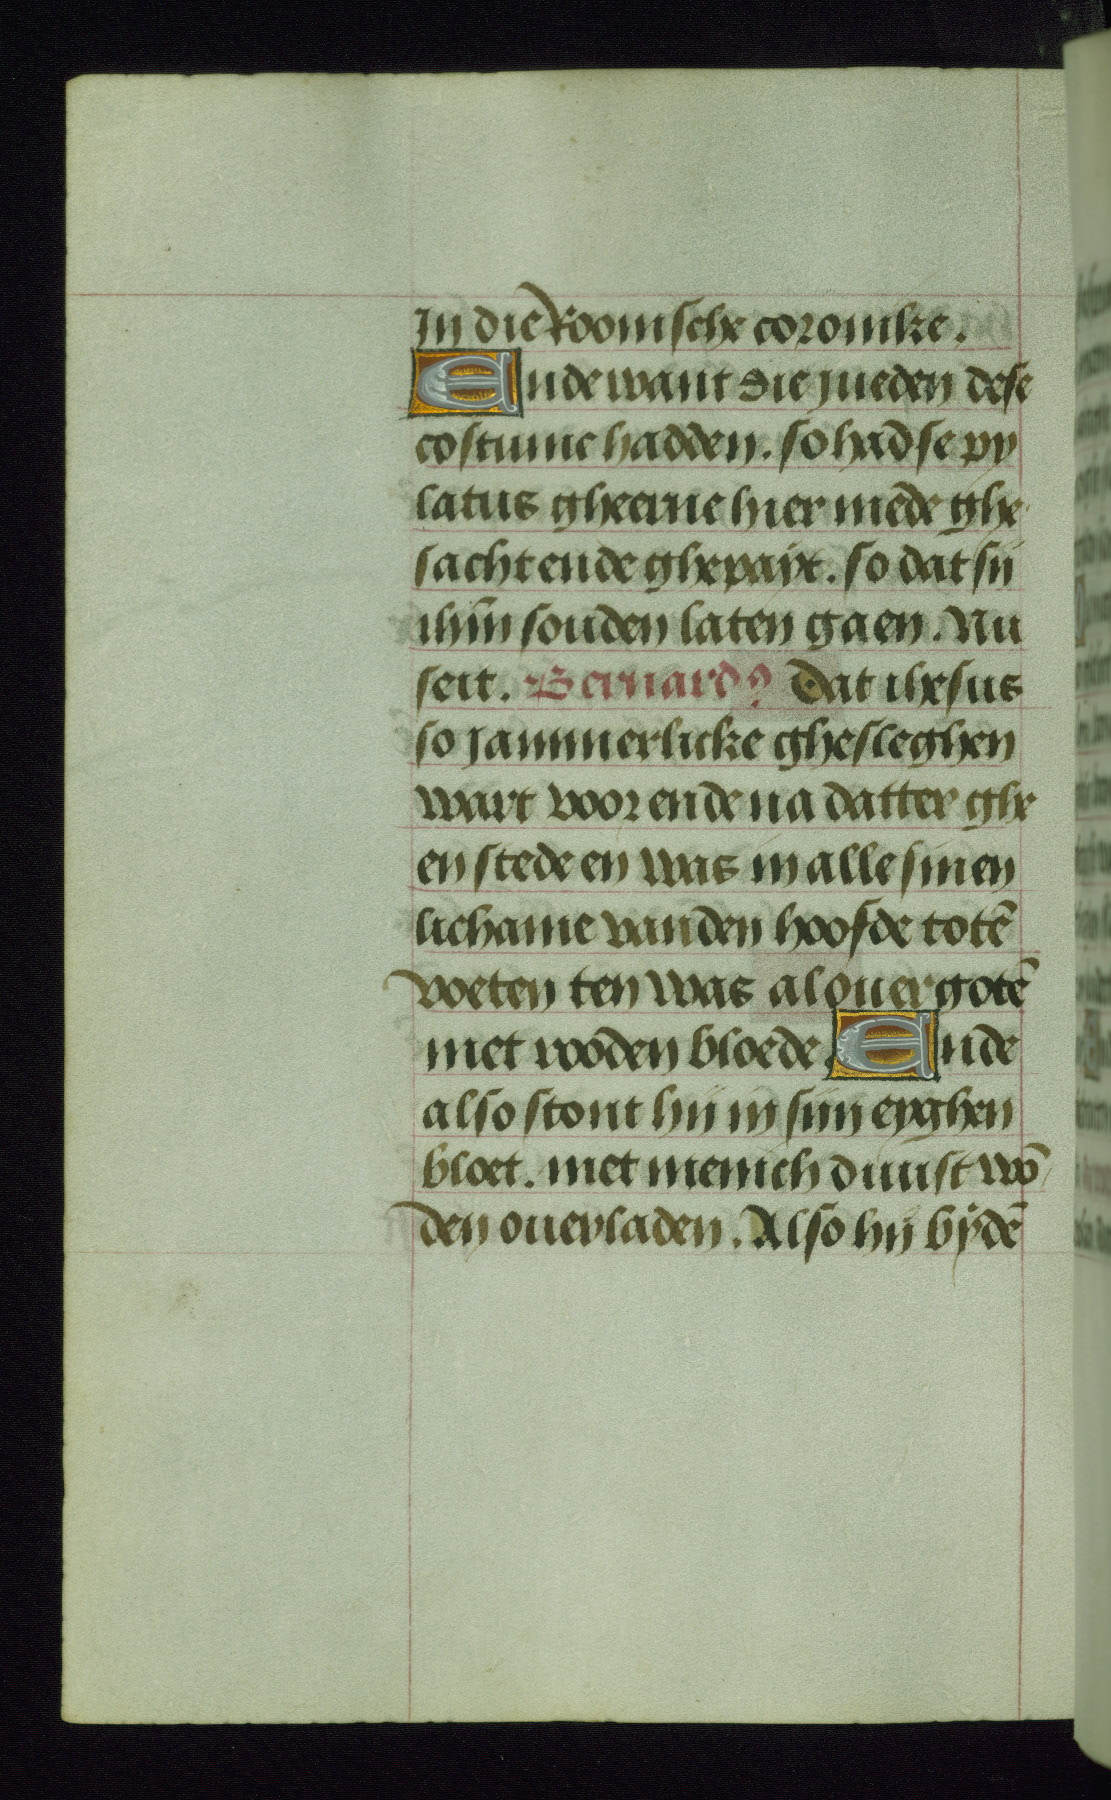 In die Roomsche coronike.
Ende want die jueden dese
costume hadden. so hadse py
latus gheerne hier mede ghe
sacht ende ghepayt. so dat sij
ihm̄ souden laten gaen. Nu
seit. Bernardꝰ Dat ihesus
so jammerlicke ghesleghen
wart voor ende na datter ghe
en stede en was in alle sinen
lichame vanden hoofde totē
voeten ten was al ouergotē
met rooden bloede. Ende
also stont hij in sijn eyghen
bloet. met menich duust wō
den ouerladen. Also hij bydē